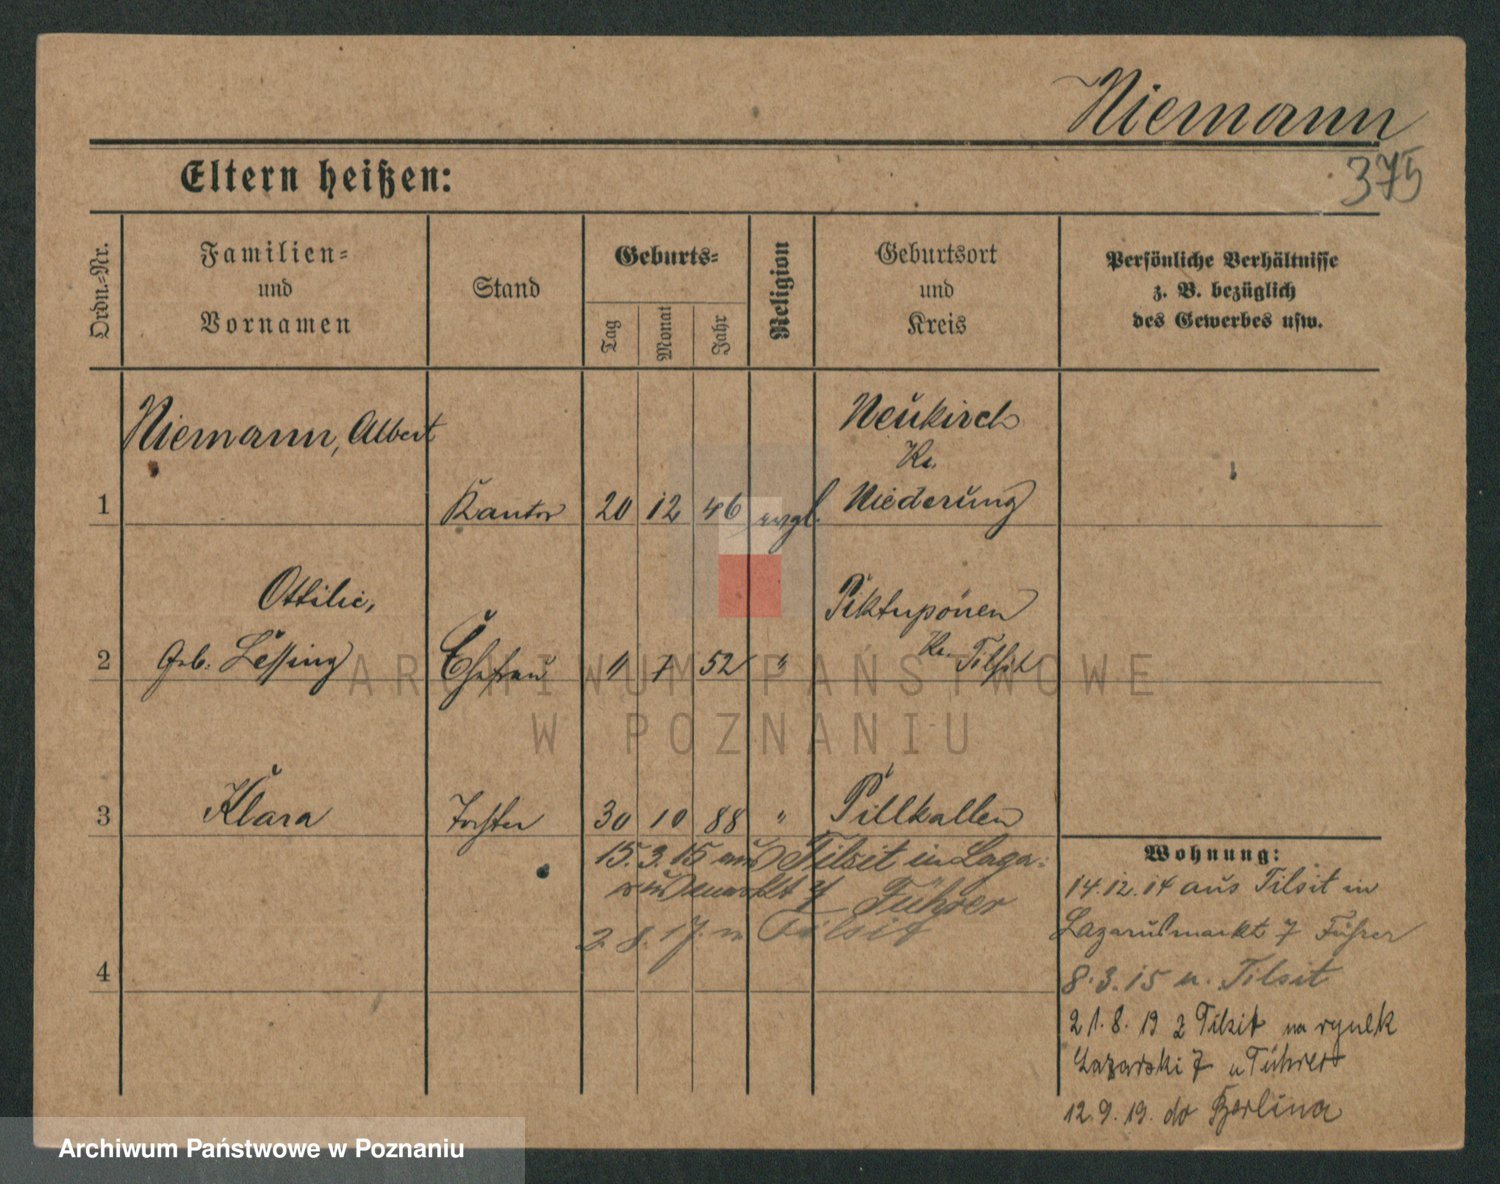 Niemann
375
Eltern heißen:
Ordn.-Nr.
Familien- und Vornamen
Stand
Geburts-
Tag
Monat
Jahr
Religion
Geburtsort und Kreis
Persönliche Verhältnisse
z. B. bezüglich
des Gewerbes usw.
Niemann, Albert
Neukirch
Kr.
1 Kantor 20 12 46 evgl. Niederung
Ottilie,
Piktupönen
2 Geb. Lessing Ehefrau 11 7 52 " Kr. Tilsit
3 Klara Tochter 30 10 88 " Pillkallen
15.3.15 aus Tilsit in Laza-
rusmarkt 7 Führer
2.8.17. n Tilsit
4
Wohnung:
14.12.14 aus Tilsit in
Lazarusmarkt 7 Führer
8.3.15 n. Tilsit
21.8.19 z Tilsit na rynek
Łazarski 7 u Führer
12.9.19. do Berlina
ARCHIWUM PAŃSTWOWE
W POZNANIU
Archiwum Państwowe w Poznaniu